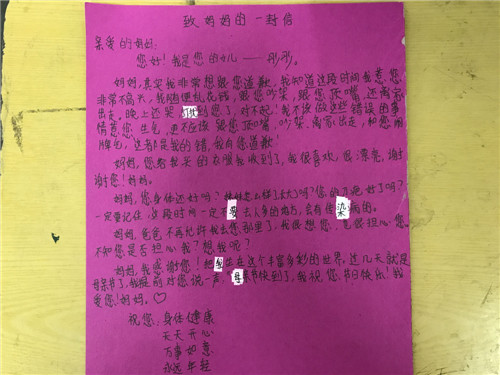 致妈妈的一封信
亲爱的妈妈:
您好!我是您的女儿——彤彤。
妈妈,其实我非常想跟您道歉,我知道这段时间我惹您
非常不高兴,我随便乱花钱,跟您吵架,跟您顶嘴还离家
出走。晚上还哭 到了,对不起!我不该做这些错误的事
情惹您生气,更不应该跟您顶嘴、吵架、离家出走,和您闹
脾气,这都是我的错,我向您道歉。
妈妈,您给我买的衣服我收到了,我很喜欢,很漂亮,谢
谢您!妈妈。
妈妈,您身体还好吗?妹妹怎么样了长大了吗?您的刀疤好了吗?
一定要记住,这段时间一定不要去人多的地方,会有传染病的。
妈妈,爸爸不再允许我去您那里了,我很想您,也很担心您。
不知您是否担心我?想我呢?
妈妈,我感谢您!把我生在这个丰富多彩的世界,这几天就是
母亲节了,我提前对您说一声:"母亲节快到了,我祝您节日快乐!我
爱您!妈妈。♡
祝您:身体健康
天天开心
万事如意
永远年轻